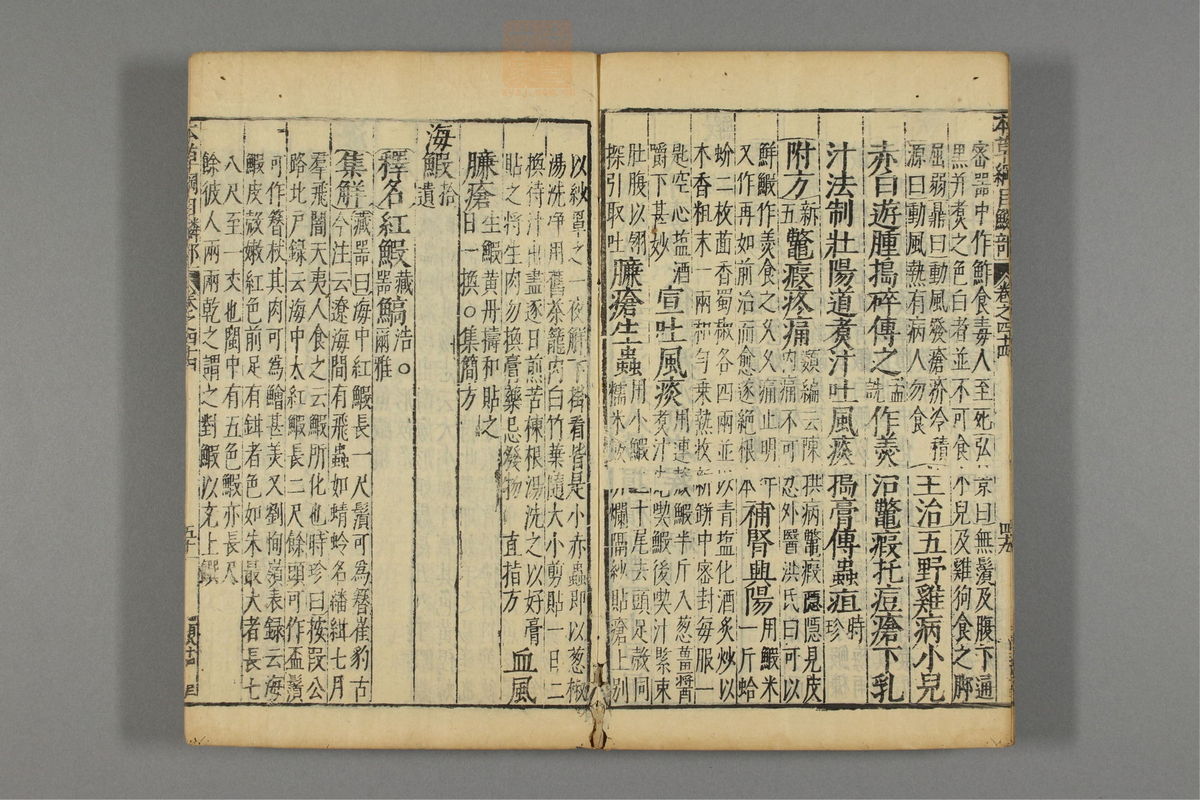 本草綱目鱗部 卷之四十四 四九
密器中作鮓食毒人至死弘景曰無鬚及腹下通
黑并煮之色白者並不可食小兒及雞狗食之腳
屈弱鼎曰動風發瘡疥冷積
源曰動風熱有病人勿食
主治五野雞病小兒
赤白遊腫搗碎傅之孟詵作羹治鼈瘕托痘瘡下乳
汁法制壯陽道煮汁吐風痰搗膏傅蟲疽時珍
附方新五鼈瘕疼痛
類編云陳拱病鼈瘕隱隱見皮
內痛不可忍外醫洪氏曰可以
鮮鰕作羹食之久久痛止明年
又作再如前治而愈遂絕根本
補腎興陽
用鰕米
一斤蛤
蚧二枚茴香蜀椒各四兩並以青鹽化酒炙炒以
木香粗末一兩和勻乗熱收新缾中密封每服一
匙空心鹽酒
嚼下甚妙
宣吐風痰
用連殼鰕半斤入葱薑醬
煮汁先喫鰕後喫汁緊束
肚腹以翎
探引取吐
臁瘡生蟲
用小鰕三十尾去頭足殼同
糯米飯研爛隔紗貼瘡上別
以紗罩之一夜解下掛看皆是小赤蟲即以葱椒
湯洗净用舊茶籠内白竹葉隨大小剪貼一日二
換待汁出盡逐日煎苦楝根湯洗之以好膏
貼之將生肉勿換膏藥忌發物直指方
血風
臁瘡
生鰕黃丹擣和貼之
日一換○集簡方
海鰕拾遺
釋名紅鰕藏器鰝浩○爾雅
集解
藏器曰海中紅鰕長一尺鬚可為簪崔豹古
今注云遼海間有飛蟲如蜻蛉名䌓緝七月
羣飛闇天夷人食之云鰕所化也時珍曰按段公
路北户錄云海中大紅鰕長二尺餘頭可作盃鬚
可作簪杖其肉可為鱠甚美又劉恂嶺表録云海
鰕皮殼嫩紅色前足有鉗者色如朱最大者長七
八尺至一丈也閩中有五色鰕亦長尺
餘彼人兩兩乾之謂之對鰕以充上饌
本草綱目鱗部 卷之四十四 五十